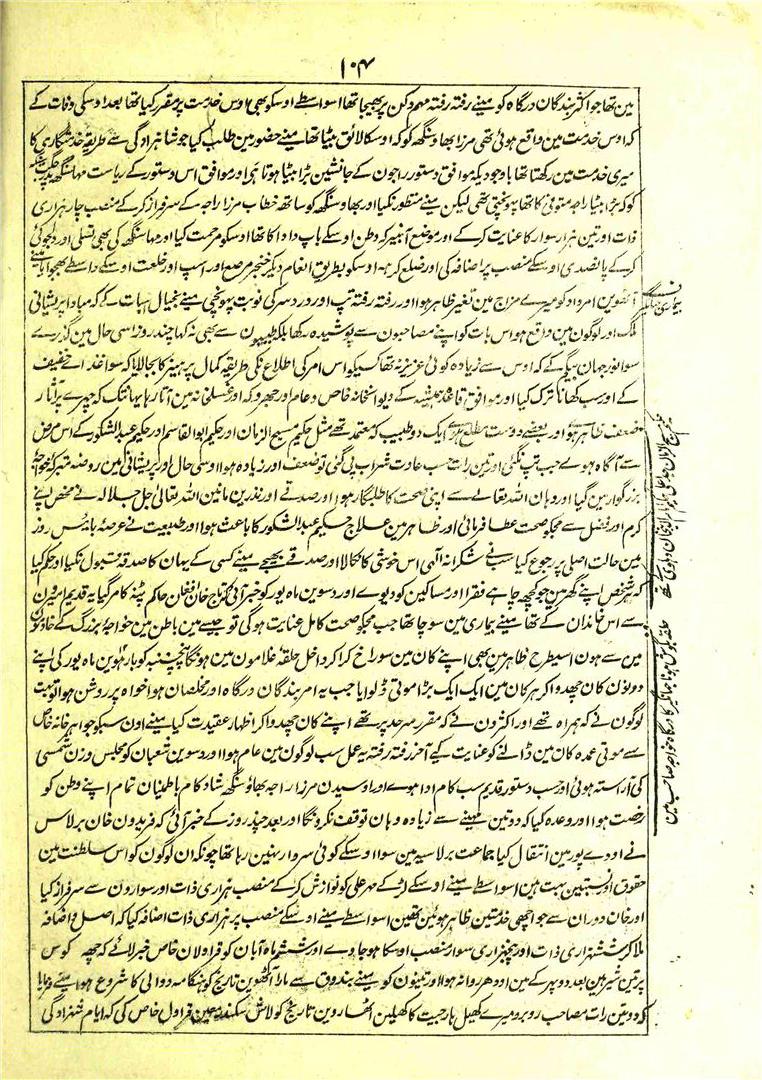 ۱۰۴
مین تھا جو اکثر بندگان درگاہ کو مینے رفتہ رفتہ مہم دکن پر بھیجا تھا اسواسطے اوسکو بھی اوس خدمت پر مقرر کیا تھا بعد اوسکی وفات کے
کہ اوس خدمت مین واقع ہوئی تھی مرزا بھاوسنگھ کو کہ اوسکا لائق بیٹا تھا مینے حضور مین طلب کیا جو شاہزادگی سے طریقہ خدمتگاری کا
میری خدمت مین رکھتا تھا باوجودیکہ موافق دستور راجون کے جانشین بڑا بیٹا ہوتا ہی اور موافق اس دستور کے ریاست مہاسنگھ پسر جگت سنگھ
کو کہ بڑا بیٹا راجہ متوفی کا تھا پہونچتی تھی لیکن مینے منظور نکیا اور بھاوسنگھ کو ساتھ خطاب مرزا راجہ کے سرفراز کر کے منصب چار ہزاری
ذات اور تین ہزار سوار کا عنایت کر کے اور موضع آنبیر کہ وطن اوسکے باپ دادا کا تھا اوسکو مرحمت کیا اور مہاسنگھ کی بھی تسلی اور دلجوئی
کر کے پانصدی اوسکے منصب پر اضافہ کی اور ضلع کڑہہ اوسکو بطریق انعام دیکر خنجر مرصع اور اسپ اور خلعت اوسکے واسطے بھجوایا
آٹھوین امرداد کو میرے مزاج مین تغیر ظاہر ہوا اور رفتہ رفتہ تپ اور درد سر کی نوبت پہونچی مینے بخیال اسبات کے کہ مبادا پریشانی
ملک اور لوگون مین واقع ہو اس بات کو اپنے مصاحبون سے پوشیدہ رکھا بلکہ طبیبون سے بھی نہ کہا چند روز اسی حال مین گذرے
سوا نورجہان بیگم کے کہ اوس سے زیادہ کوئی عزیز نہ تھا کسیکو اس امر کی اطلاع نکی طریقہ کمال پرہیز کا بجا لایا کہ سوا غذاے خفیف
کے اور سب کھانا ترک کیا اور موافق قاعدہ ہمیشہ کے دیوانخانہ خاص و عام اور جھروکہ اور غسلخانہ مین آتا رہا یہانتک کہ چہرے پر آثار
ضعف ظاہر ہوے اور بعضے دوست مطلع ہوے ایک دو طبیب کہ معتمد تھے مثل حکیم مسیح الزمان اور حکیم ابوالقاسم اور حکیم عبدالشکور کے اس مرض
سے آگاہ ہوے جب تپ نگئی اور تین رات حسب عادت شراب پی گئی تو ضعف اور زیادہ ہوا اوسی حال اور پریشانی مین روضہ متبرکہ خواجہ
بزرگوار مین گیا اور وہان اللہ تعالی سے اپنی صحت کا طلبگار ہوا اور صدقے اور نذرین مانین اللہ تعالی جل جلالہ نے محض اپنے
کرم اور فضل سے مجکو صحت عطا فرمائی اور ظاہر مین علاج حکیم عبدالشکور کا باعث ہوا اور طبیعت نے عرصہ بائیس روز
مین حالت اصلی پر رجوع کیا سب نے شکرانہ الٰہی اس خوشی کا نکالا اور صدقے بھیجے مینے کسی کے یہان کا صدقہ قبول نکیا اور حکم کیا
کہ ہر شخص اپنے گھر مین جو کچھ چاہے فقرا اور مساکین کو دیوے اور دسوین ماہ پور کو خبر آئی کہ تاج خان افغان حاکم پٹنہ کا مرگیا یہ قدیم امیرون
سے اس خاندان کے تھا مینے بیماری مین سوچا تھا جب مجکو صحت کامل عنایت ہوگی تو جیسے مین باطن مین خواجہ بزرگ کے خادمون
مین سے ہون اسیطرح ظاہر مین بھی اپنے کان مین سوراخ کراکر داخل حلقہ غلامون مین ہونگا پنجشنبہ کو بارھوین ماہ پور کی اپنے
دونون کان چھدواکر ہر کان مین ایک ایک بڑا موتی ڈلوایا جب یہ امر بندگان درگاہ اور مخلصان ہواخواہ پر روشن ہوا تو بہت
لوگون نے کہ ہمراہ تھے اور اکثرون نے کہ مقرر سرحد پر تھے اپنے کان چھدواکر اظہار عقیدت کیا مینے اون سبکو جواہرخانہ خاص
سے موتی عمدہ کان مین ڈالنے کو عنایت کیے آخر رفتہ رفتہ یہ عمل سب لوگون مین عام ہوا اور دسوین شعبان کو مجلس وزن شمسی
کی آراستہ ہوئی اور حسب دستور قدیم سب کام ادا ہوے اور اوسیدن مرزا راجہ بھاؤسنگھ شادکام باطمینان تمام اپنے وطن کو
رخصت ہوا اور وعدہ کیا کہ دو تین مہینے سے زیادہ وہان توقف نکرونگا اور بعد چند روز کے خبر آئی کہ فریدون خان برلاس
نے اودے پور مین انتقال کیا جماعت برلاسیہ مین سوا اوسکے کوئی سردار نہین رہا تھا چونکہ ان لوگون کو اس سلطنت مین
حقوق اور نسبتین بہت ہین اسواسطے مینے اوسکے لڑکے مہر علی کو نوازش کر کے منصب ہزاری ذات اور سوارون سے سرفراز کیا
اور خان دوران سے جو اچھی خدمتین ظاہر ہوئین تھین اسواسطے مینے اوسکے منصب پر ہزاری ذات اضافہ کیا کہ اصل و اضافہ
ملاکر شش ہزاری ذات اور پنجہزاری سوار منصب اوسکا ہوجاوے اور ششم ماہ آبان کو قراولان خاص خبر لائے کہ چھہ کوس
پر تین شیر ہین بعد دوپہر کے مین اودھر روانہ ہوا اور تینون کو مینے بندوق سے مارا آٹھوین تاریخ کو ہنگامہ دوالی کا شروع ہوا مینے فرمایا
کہ دو تین رات مصاحب روبرو میرے کھیل ہار جیت کا کھیلین اٹھاروین تاریخ کو لاش سکندر معین قراول خاص کی کہ ایام شہزادگی